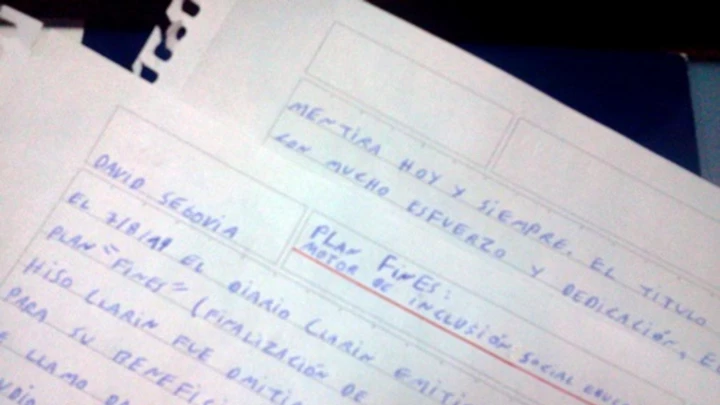 MENTIRA HOY Y SIEMPRE. EL TITULO
CON MUCHO ESFUERZO Y DEDICACIÓN, E
DAVID SEGOVIA
PLAN FINES:
MOTOR DE INCLUSIÓN SOCIAL
EL 7/8/19 EL DIARIO CLARIN EMITI
PLAN "FINES" (FINALIZACIÓN DE
HISO CLARIN FUE OMITI
PARA SU BENEFICI
LLAMO